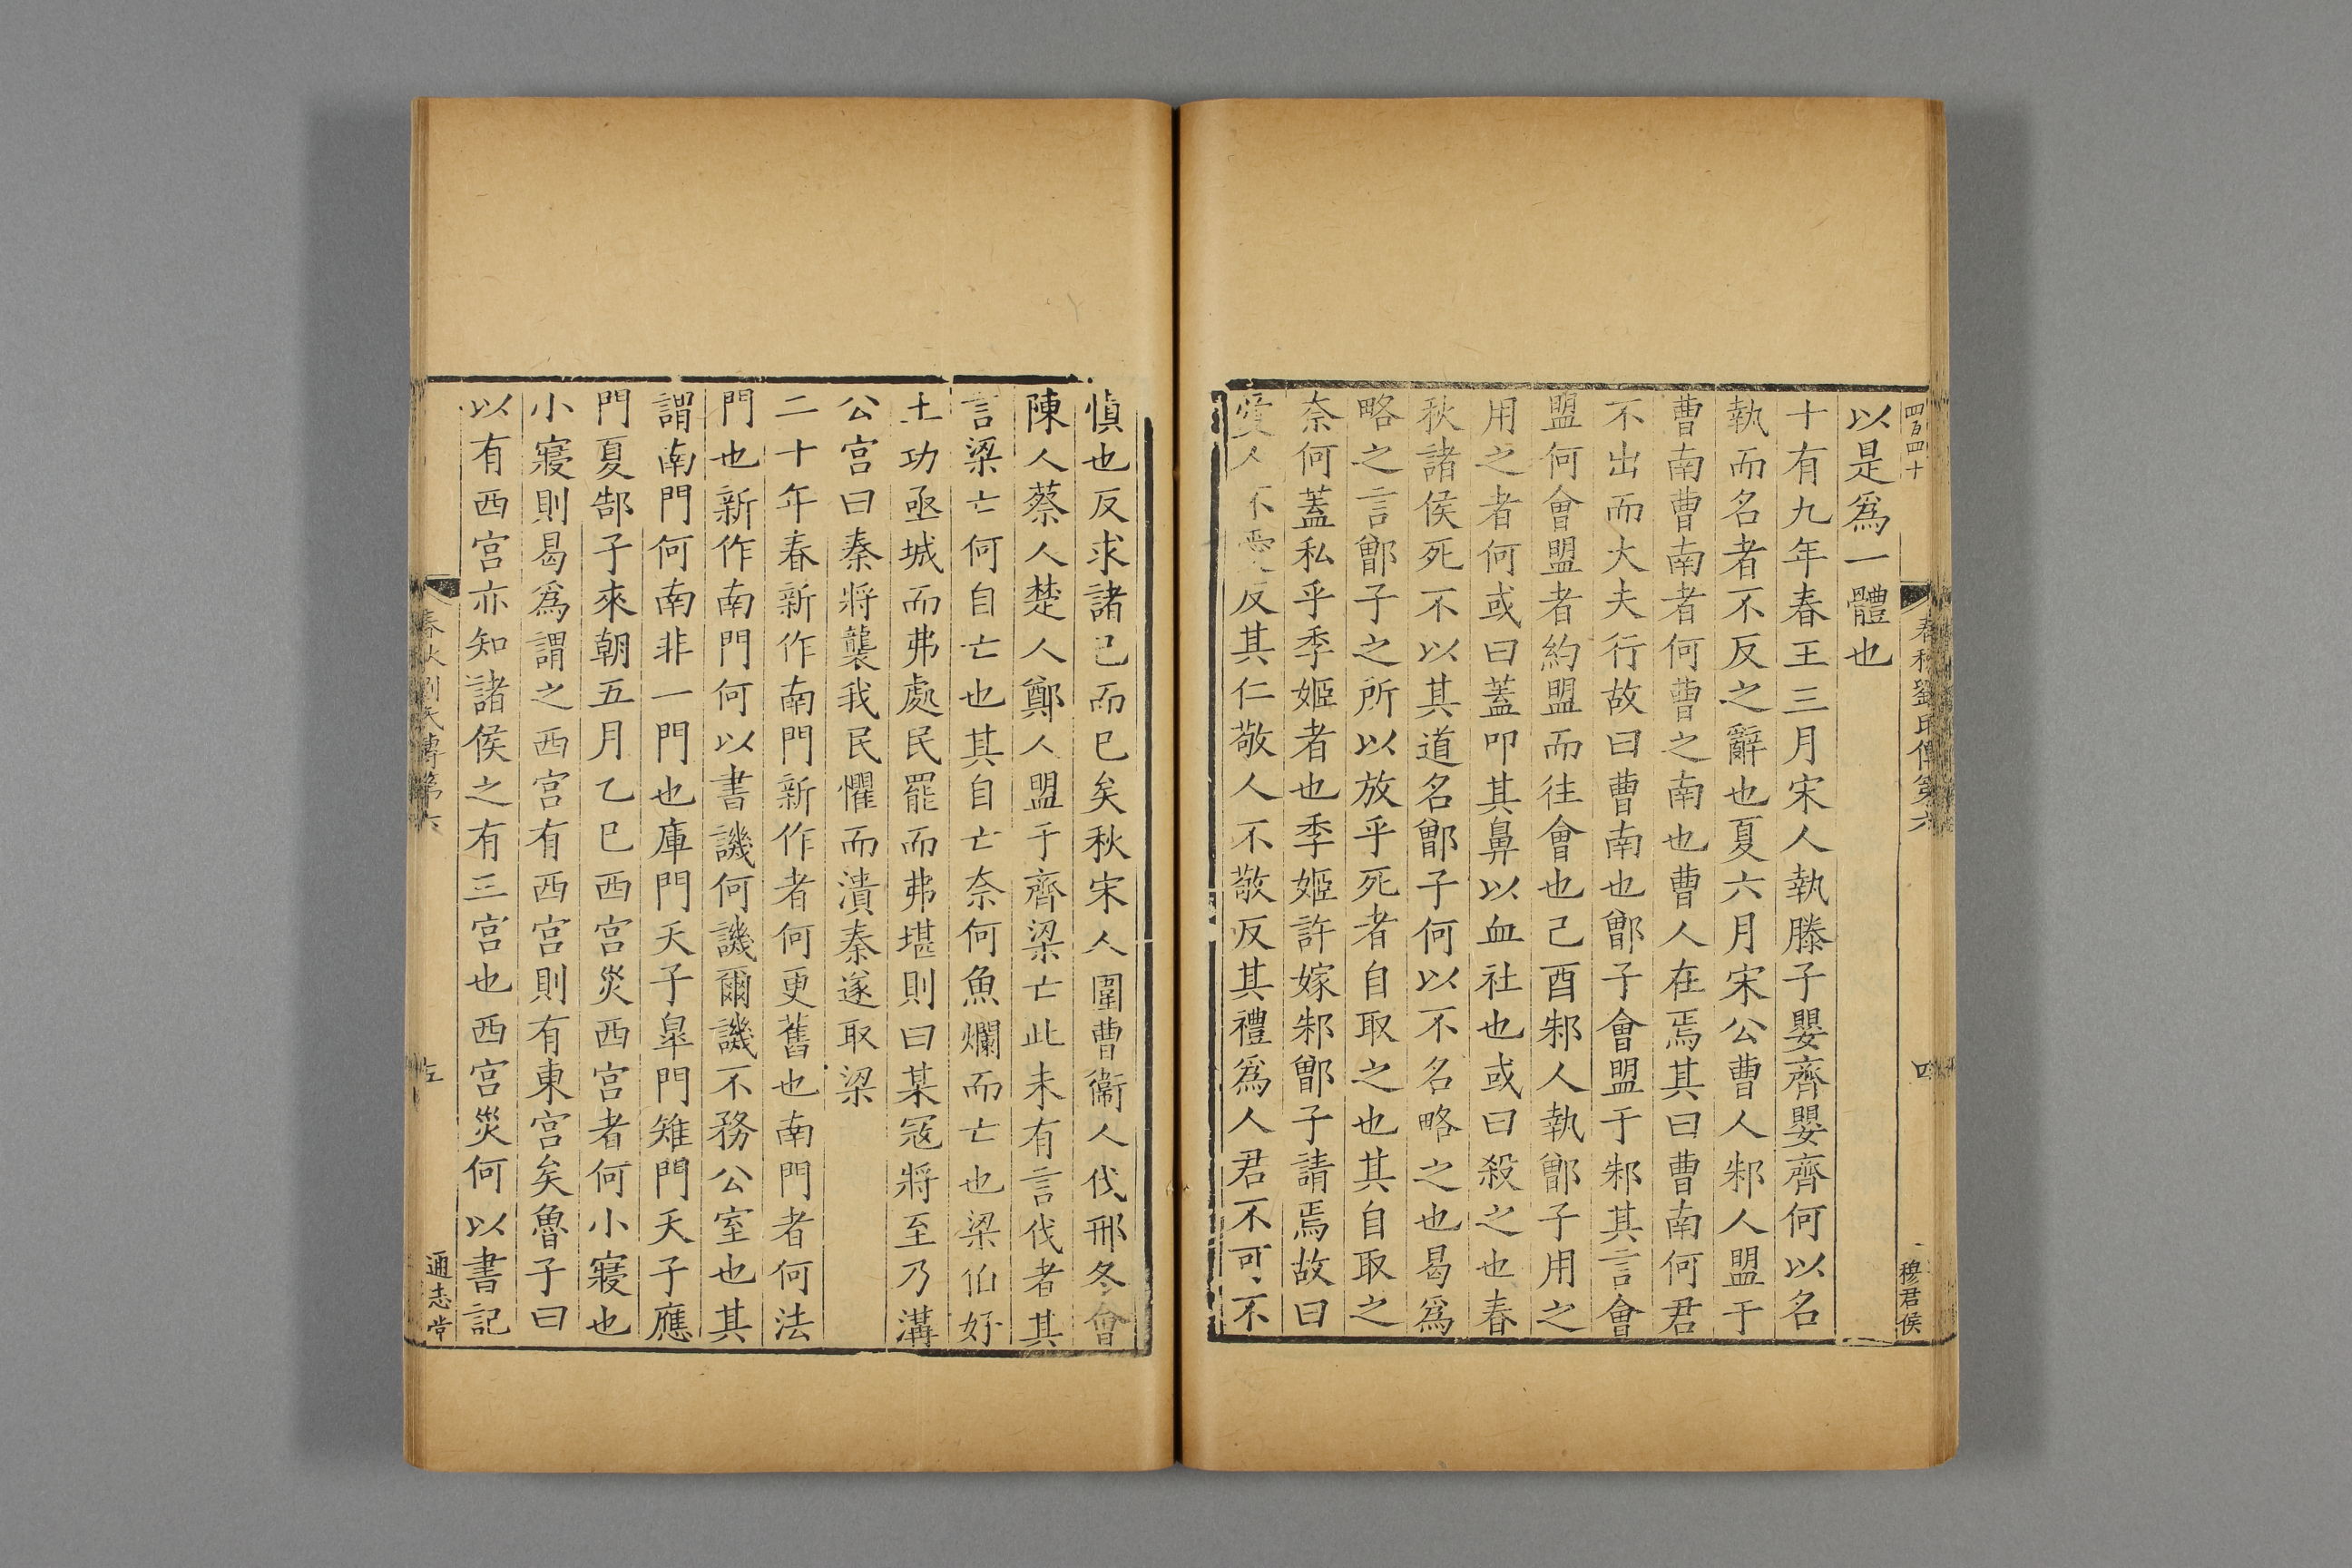 四百四十
春秋劉氏傳第六
四
穆君侯
以是爲一體也
十有九年春王三月宋人執滕子嬰齊嬰齊何以名
執而名者不反之辭也夏六月宋公曹人邾人盟于
曹南曹南者何曹之南也曹人在焉其曰曹南何君
不出而大夫行故曰曹南也鄫子會盟于邾其言會
盟何會盟者約盟而往會也己酉邾人執鄫子用之
用之者何或曰蓋叩其鼻以血社也或曰殺之也春
秋諸侯死不以其道名鄫子何以不名略之也曷爲
略之言鄫子之所以放乎死者自取之也其自取之
奈何蓋私乎季姬者也季姬許嫁邾鄫子請焉故曰
愛人不愛反其仁敬人不敬反其禮爲人君不可不
慎也反求諸已而已矣秋宋人圍曹衞人伐邢冬會
陳人蔡人楚人鄭人盟于齊梁亡此未有言伐者其
言梁亡何自亡也其自亡奈何魚爛而亡也梁伯好
土功亟城而弗處民罷而弗堪則曰某寇將至乃溝
公宫曰秦將襲我民懼而潰秦遂取梁
二十年春新作南門新作者何更舊也南門者何法
門也新作南門何以書譏何譏爾譏不務公室也其
謂南門何南非一門也庫門天子皐門雉門天子應
門夏郜子來朝五月乙巳西宫災西宫者何小寢也
小寢則曷爲謂之西宫有西宫則有東宫矣魯子曰
以有西宫亦知諸侯之有三宫也西宫災何以書記
春秋劉氏傳第六
五
通志堂